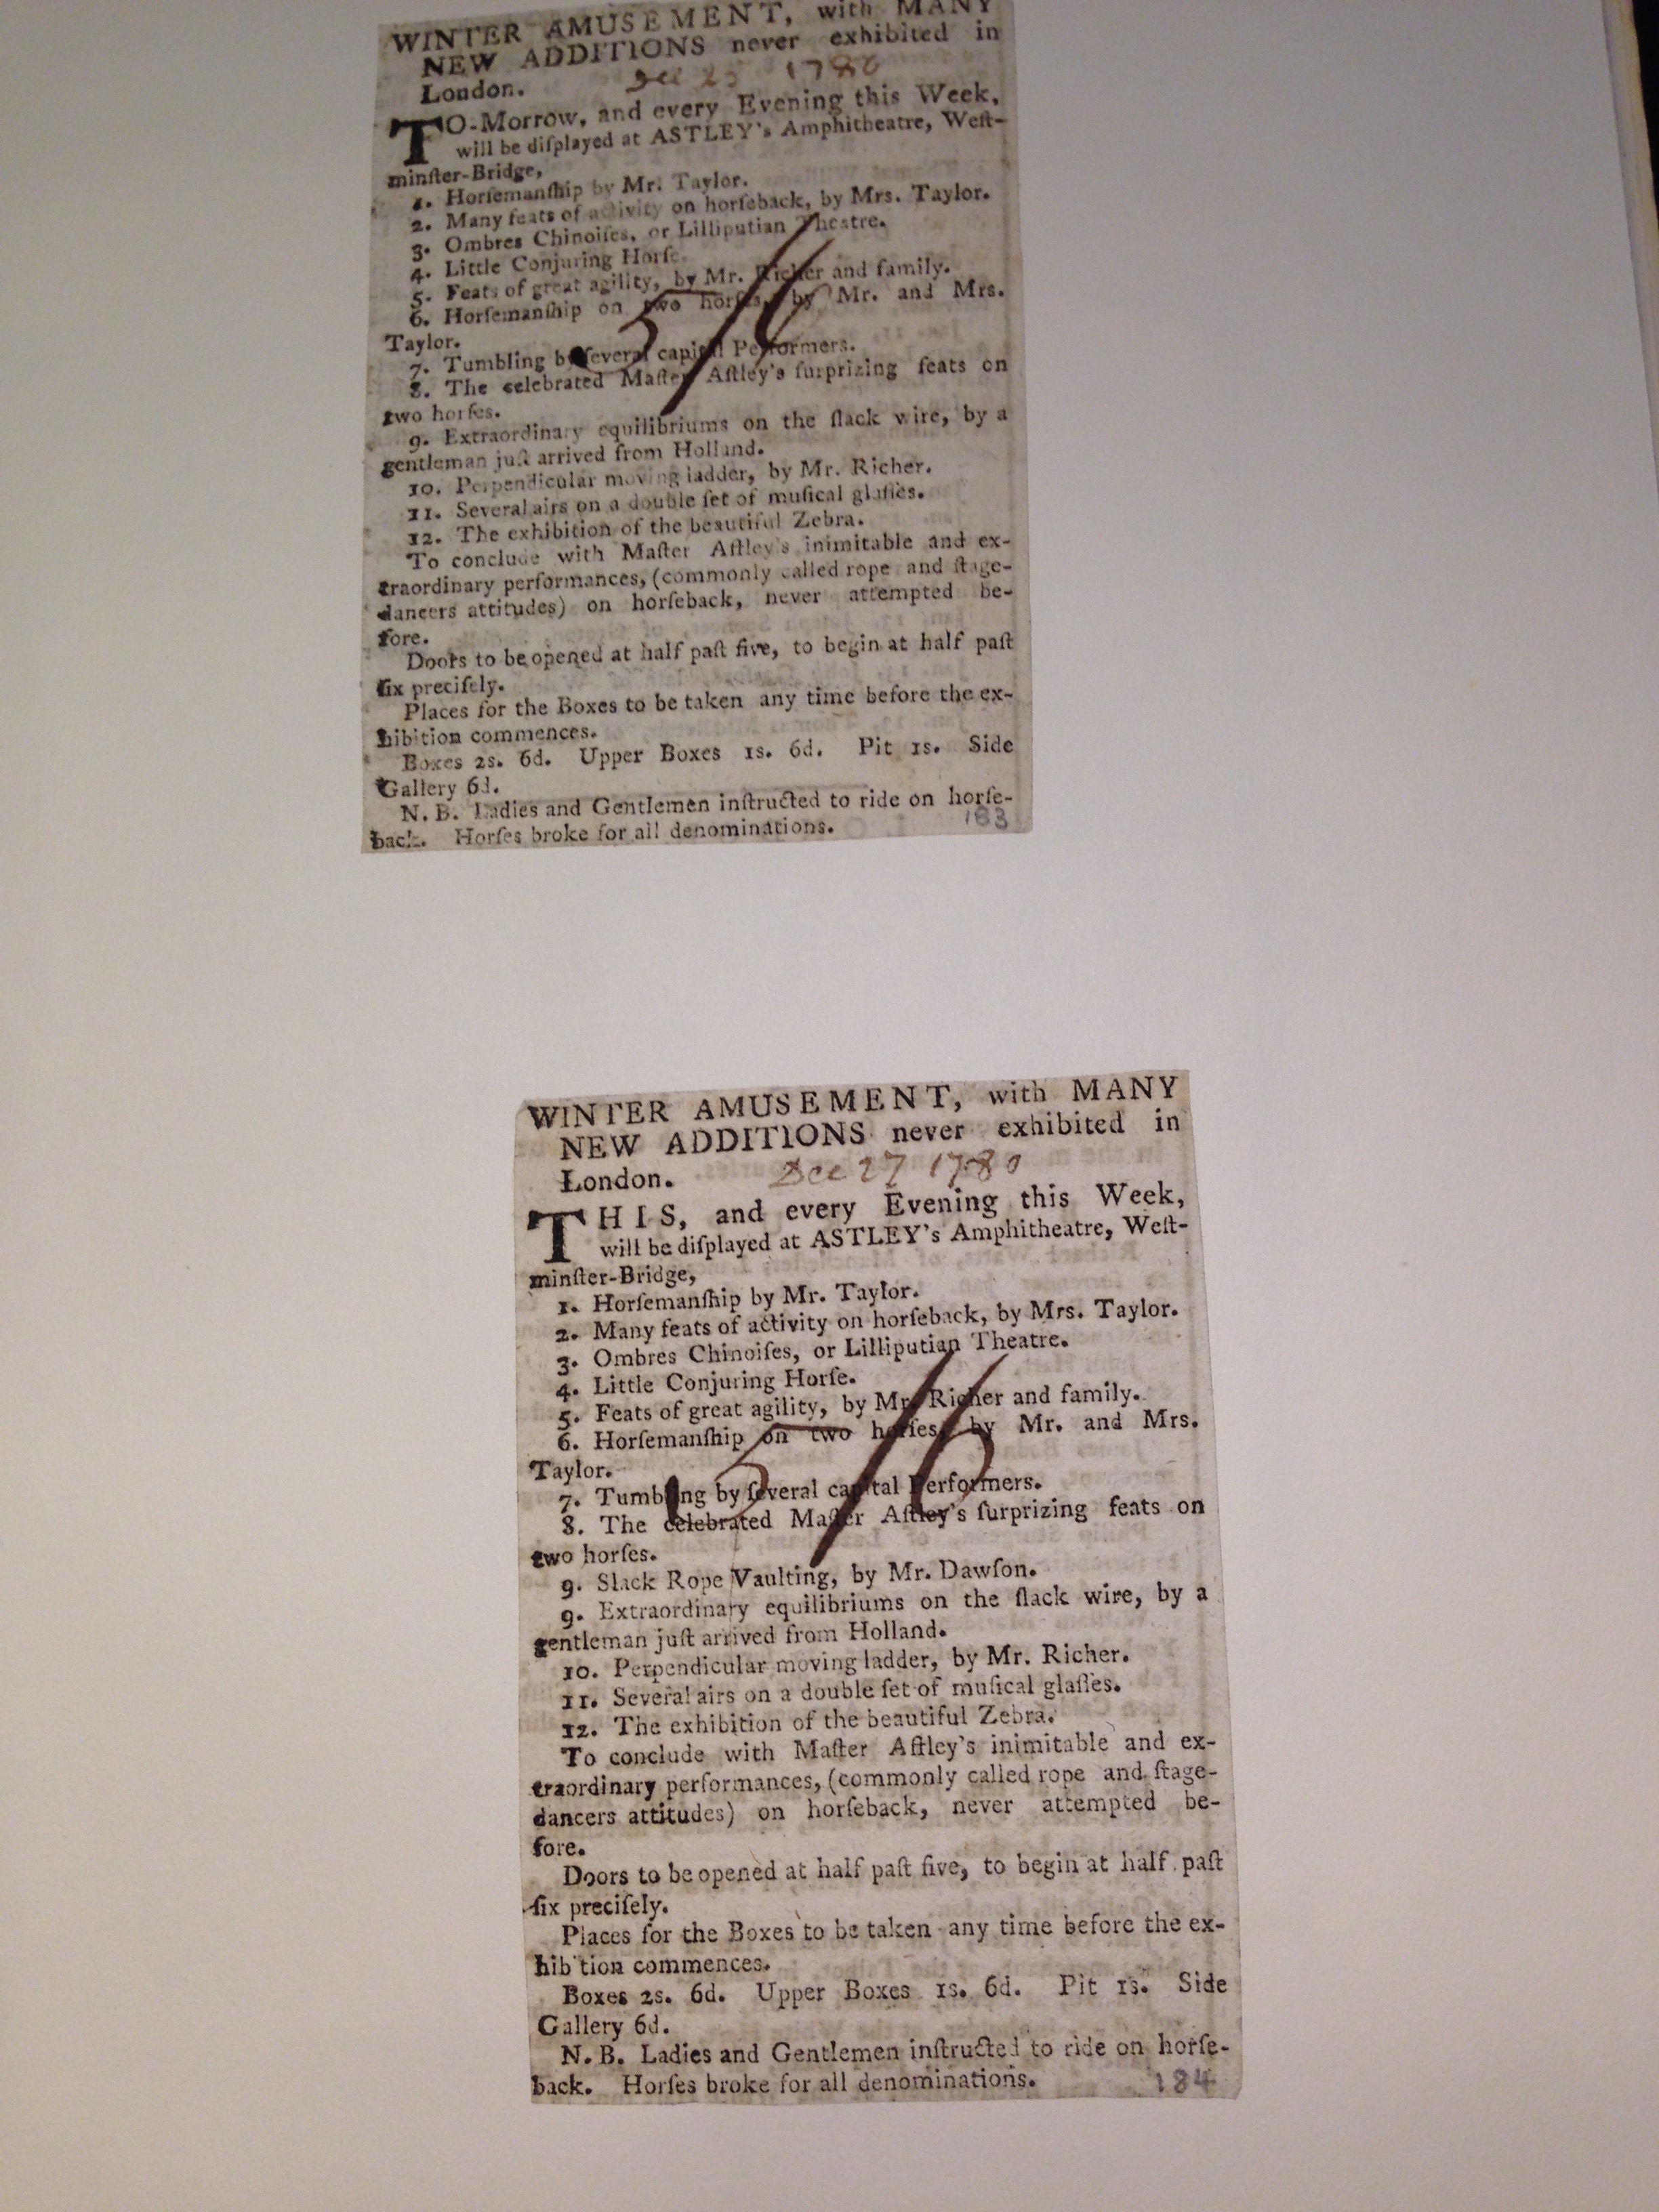 WINTER AMUSEMENT, with MANY
NEW ADDITIONS never exhibited in
London.
1780
TO-Morrow, and every Evening this Week,
will be diſplayed at ASTLEY's Amphitheatre, Weſt-
minſter-Bridge,
1. Horſemanſhip by Mr. Taylor.
2. Many feats of activity on horſeback, by Mrs. Taylor.
3. Ombres Chinoiſes, or Lilliputian Theatre.
4. Little Conjuring Horſe.
5. Feats of great agility, by Mr. Richer and family.
6. Horſemanſhip on two horſes, by Mr. and Mrs.
Taylor.
7. Tumbling by ſeveral capital Performers.
8. The celebrated Maſter Aſtley's ſurprizing feats on
two horſes.
9. Extraordinary equilibriums on the ſlack wire, by a
gentleman juſt arrived from Holland.
10. Perpendicular moving ladder, by Mr. Richer.
11. Several airs on a double ſet of muſical glaſſes.
12. The exhibition of the beautiful Zebra.
To conclude with Maſter Aſtley's inimitable and ex-
traordinary performances, (commonly called rope and ſtage-
dancers attitudes) on horſeback, never attempted be-
fore.
Doors to be opened at half paſt five, to begin at half paſt
ſix preciſely.
Places for the Boxes to be taken any time before the ex-
hibition commences.
Boxes 2s. 6d. Upper Boxes 1s. 6d. Pit 1s. Side
Gallery 6d.
N. B. Ladies and Gentlemen inſtructed to ride on horſe-
back. Horſes broke for all denominations.
183
WINTER AMUSEMENT, with MANY
NEW ADDITIONS never exhibited in
London.
Dec 27 1780
THIS, and every Evening this Week,
will be diſplayed at ASTLEY's Amphitheatre, Weſt-
minſter-Bridge,
1. Horſemanſhip by Mr. Taylor.
2. Many feats of activity on horſeback, by Mrs. Taylor.
3. Ombres Chinoiſes, or Lilliputian Theatre.
4. Little Conjuring Horſe.
5. Feats of great agility, by Mr. Richer and family.
6. Horſemanſhip on two horſes, by Mr. and Mrs.
Taylor.
7. Tumbling by ſeveral capital Performers.
8. The celebrated Maſter Aſtley's ſurprizing feats on
two horſes.
9. Slack Rope Vaulting, by Mr. Dawſon.
9. Extraordinary equilibriums on the ſlack wire, by a
gentleman juſt arrived from Holland.
10. Perpendicular moving ladder, by Mr. Richer.
11. Several airs on a double ſet of muſical glaſſes.
12. The exhibition of the beautiful Zebra.
To conclude with Maſter Aſtley's inimitable and ex-
traordinary performances, (commonly called rope and ſtage-
dancers attitudes) on horſeback, never attempted be-
fore.
Doors to be opened at half paſt five, to begin at half paſt
ſix preciſely.
Places for the Boxes to be taken any time before the ex-
hib tion commences.
Boxes 2s. 6d. Upper Boxes 1s. 6d. Pit 1s. Side
Gallery 6d.
N. B. Ladies and Gentlemen inſtructed to ride on horſe-
back. Horſes broke for all denominations.
184